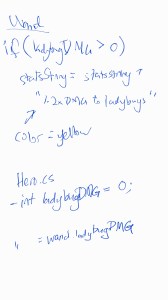 Wand
if(ladybugDMG > 0)
statsString = statsString +
"1.2x DMG to ladybugs"
color = yellow
Hero.cs
- int ladybugDMG = 0;
" = wand ladybugDMG